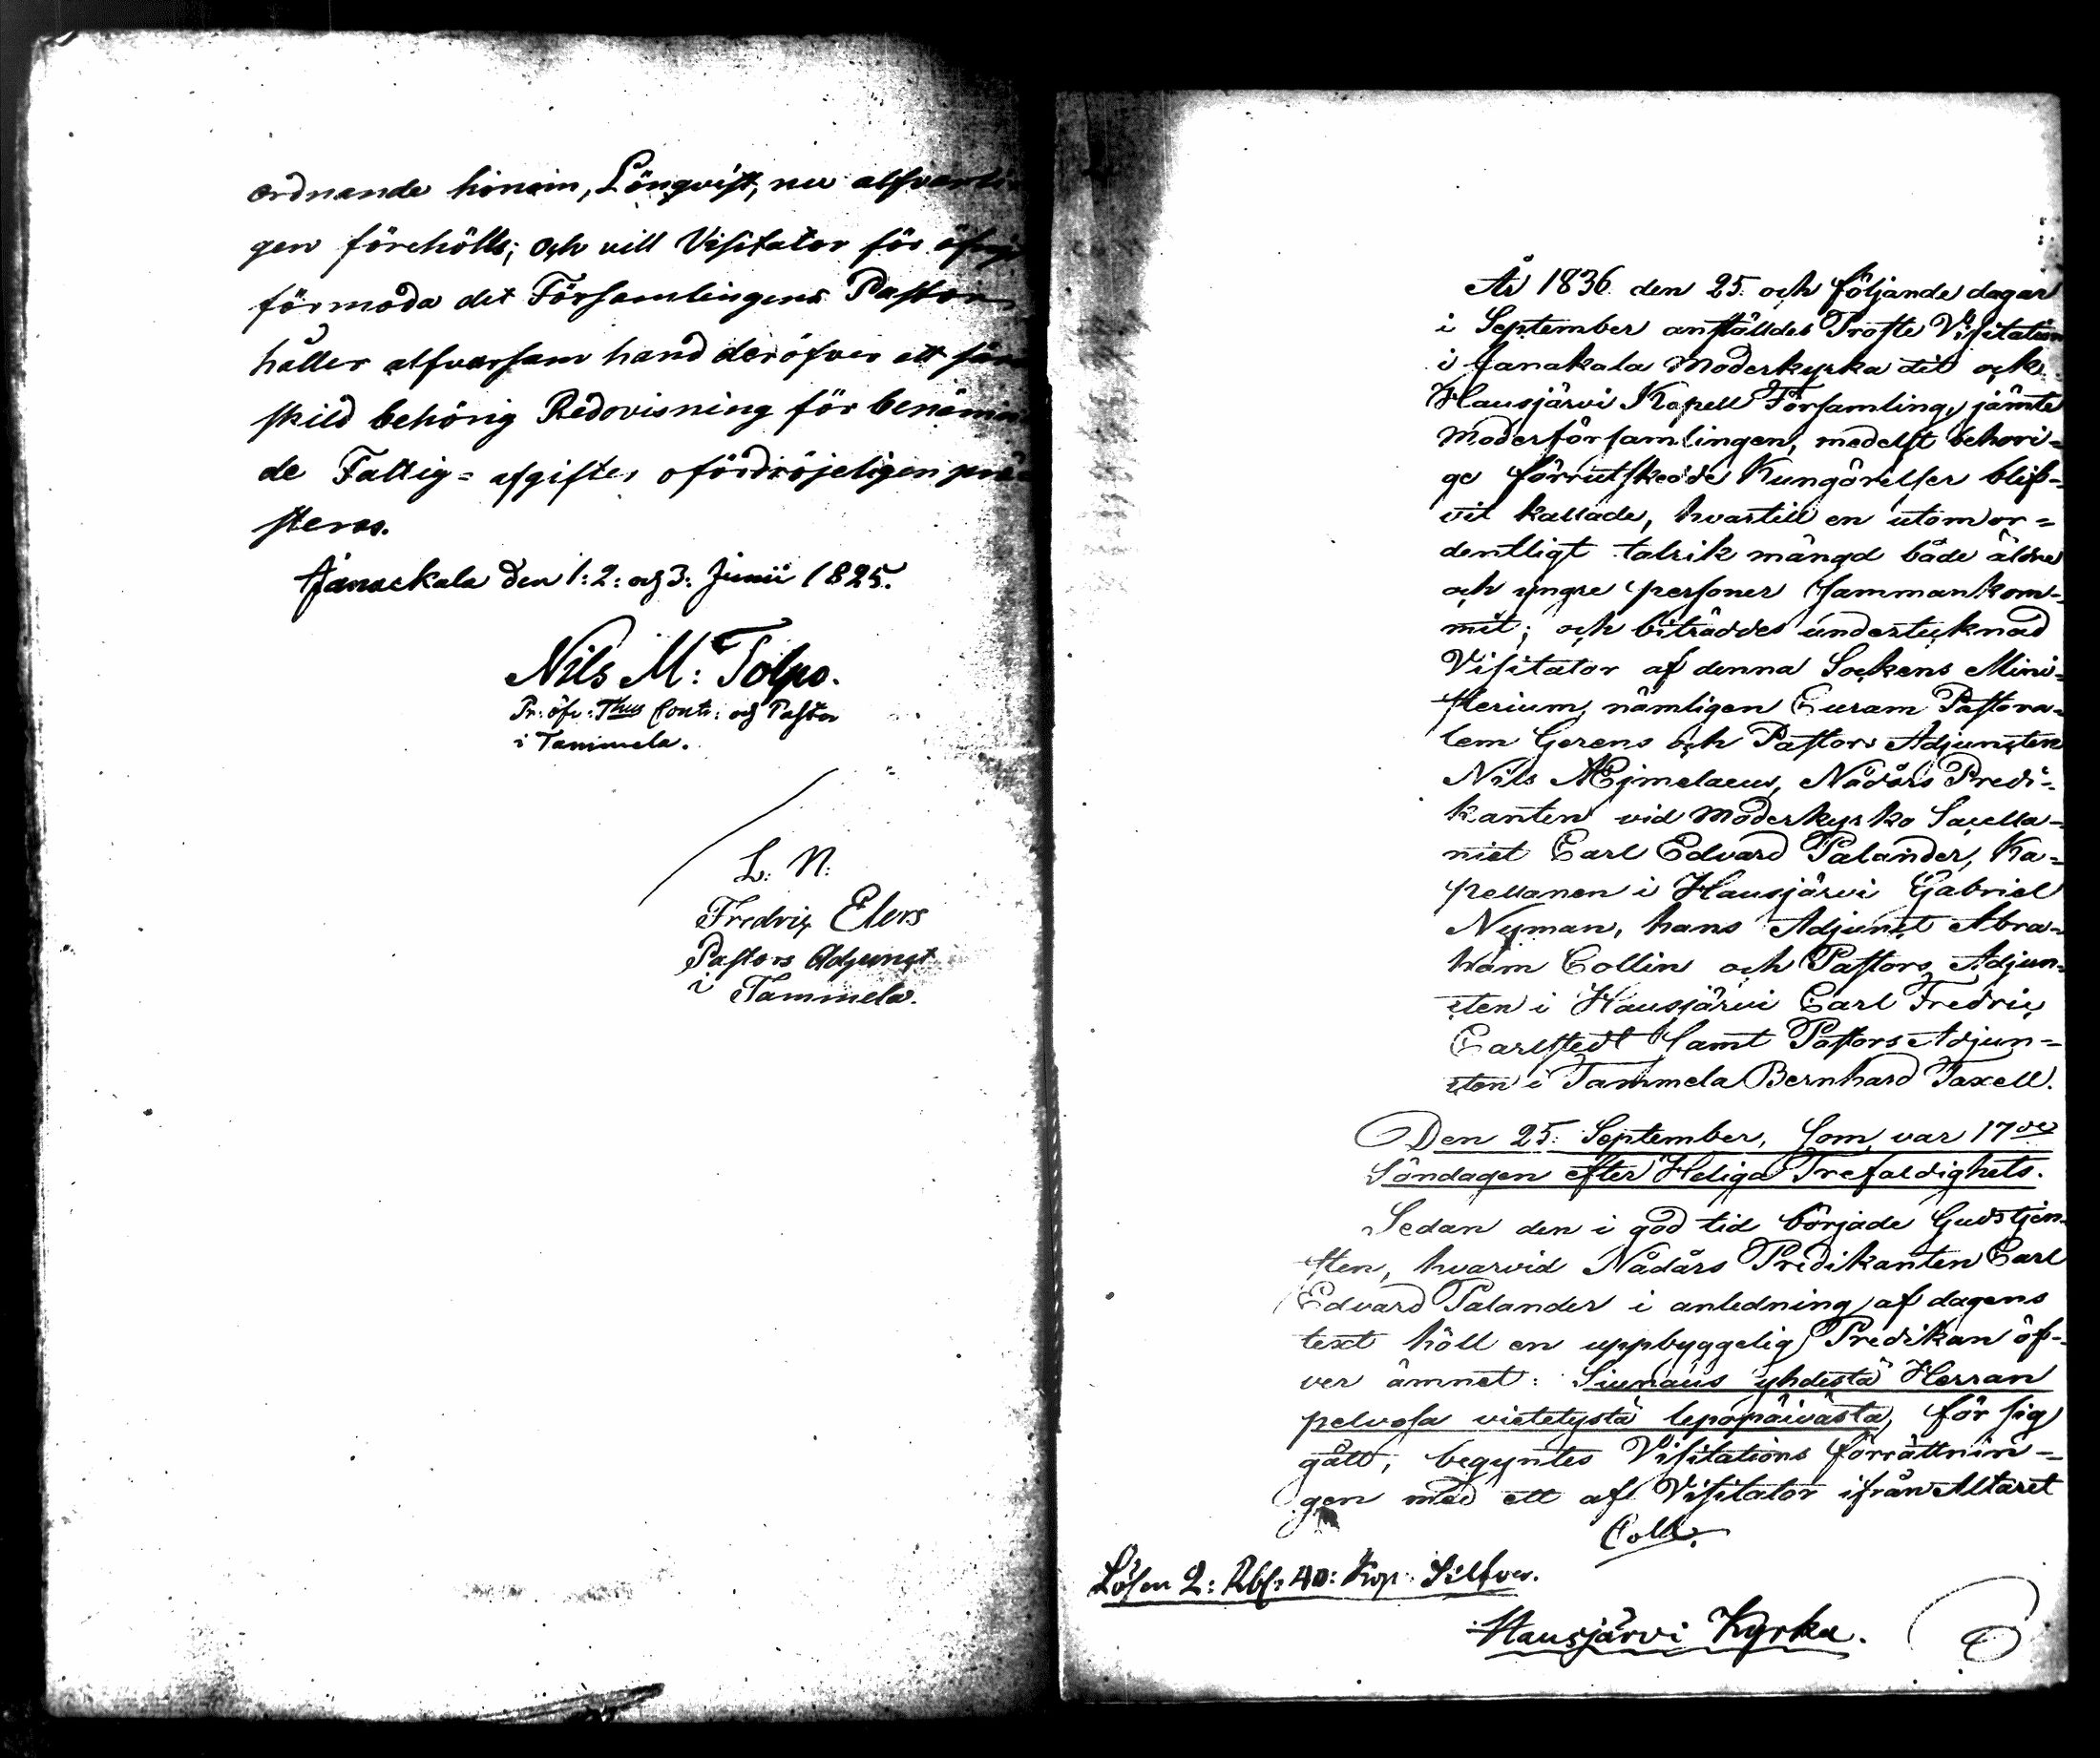 ordnande honom, Lönqvist, nu alfvarli
gen förehölls; och vill Visitator för öfrigt
förmoda det Församlingens Pastor
håller alfvarsam hand deröfver att sär
skild behörig Redovisning för benämn
de Fattig=afgifter ofördröjeligen præ
steras.
Janackala den 1: 2: och 3: Junii 1825.
Nils M: Tolpo.
Pr: öfr: Thus Contr: och Pastor
i Tammela.
L. N:
Fredric Elers
Pastors Adjunct
i Tammela.
År 1836 den 25 och följande dagar
i September anställdes Proste Visitation
i Janakala Moderkyrka dit ock
Hausjärvi Kapell Församling, jämte
Moderförsamlingen, medelst behöri=
ge förrutskedde Kungörelser blif=
vit kallade, hvartill en utomor=
dentligt talrik mängd både äldre
och yngre personer sammankom=
mit; och biträddes undertecknad
Visitator af denna Sockens Mini=
sterium, nämligen Curam Pastora=
lem Gerens och Pastors Adjuncten
Nils Mejmelaeus, Nådårs Predi=
kanten vid Moderkyrko Sacella=
niet Carl Edvard Palander, Ka=
pellanen i Hausjärvi Gabriel
Nyman, hans Adjunct Abra=
ham Collin och Pastors Adjun=
cten i Hausjärvi Carl Fredric
Carlstedt samt Pastors Adjun=
cten i Tammela Bernhard Taxell.
Den 25 September, som var 17de
Söndagen efter Heliga Trefaldighets.
Sedan den i god tid började Gudstjen=
sten, hvarvid Nådårs Predikanten Carl
Edvard Palander i anledning af dagens
text höll en uppbyggelig Predikan öf=
ver ämnet: Siunaus yhdestä Herran
pelvosa vietetystä lepopäivästä, för sig
gått, begyntes Visitations förrättnin=
gen med ett af Visitator ifrån Altaret
Coll.
Lösen 2: Rbl: 40: Kop: Silfver.
Hausjärvi Kyrka.